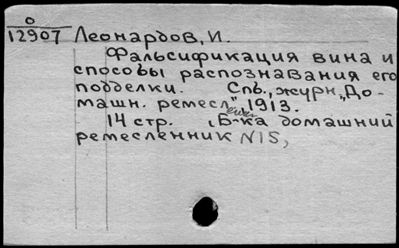 0
12907 Леонардов, И.
Фальсификация вина и
способы распознавания его
подделки. Спб., журн. „До-
машн. ремесл", 1913.
14 стр. „Б-ка домашний
ремесленник N15,